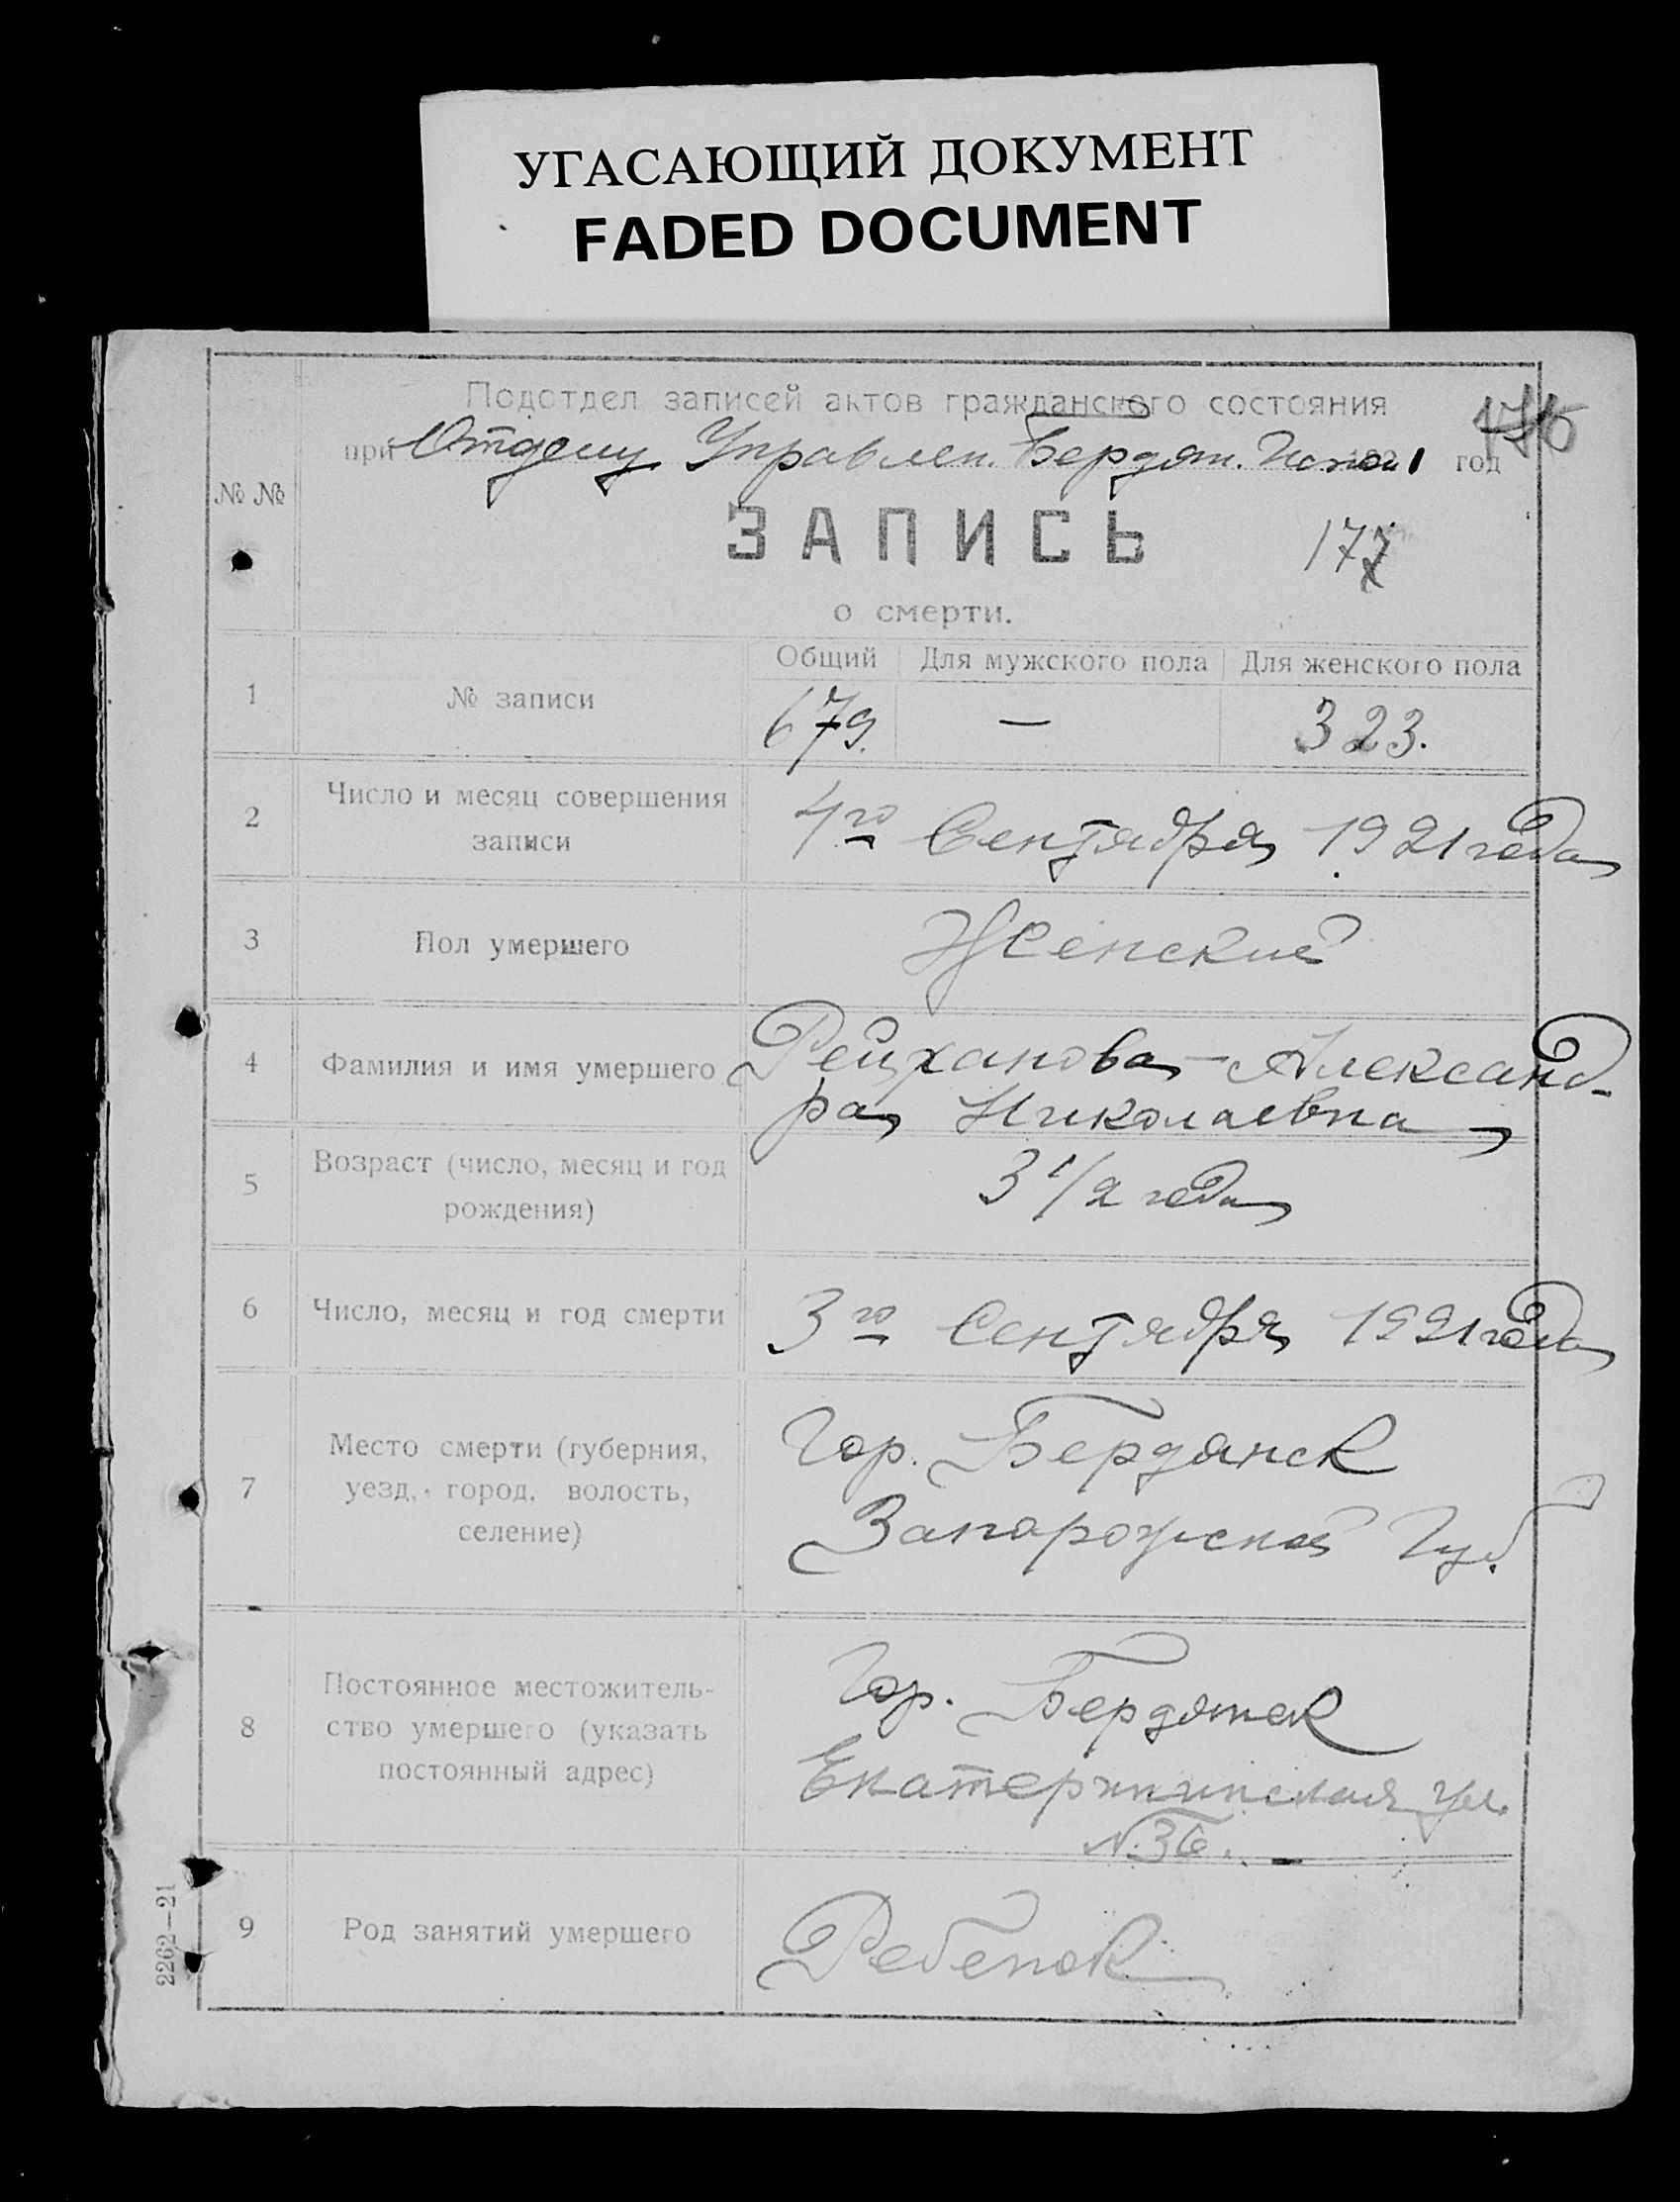 УГАСАЮЩИЙ ДОКУМЕНТ
FADED DOCUMENT
Подотдел записей актов гражданского состояния
176
при Отделу Управлен. Бердян. 1 год
№ №
ЗАПИСЬ
177
о смерти.
Общий Для мужского пола Для женского пола
1 № записи 679. — 323.
2 Число и месяц совершения
записи
4го Сентября 1921 года
3 Пол умершего Женский
4 Фамилия и имя умершего Рейханова Александ-
ра Николаевна
5 Возраст (число, месяц и год
рождения)
3 1/2 года
6 Число, месяц и год смерти 3го Сентября 1921 года
7 Место смерти (губерния,
уезд, город, волость,
селение)
Гор. Бердянск
Запорожской Губ.
8 Постоянное местожитель-
ство умершего (указать
постоянный адрес)
Гор. Бердянск
Екатерининская ул.
N. 36.
9 Род занятий умершего Ребенок
2262—21